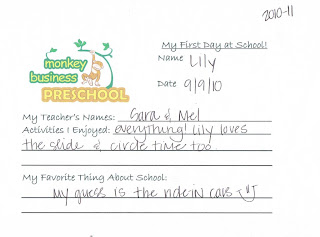 2010-11
My First Day at School!
monkey
business
PRESCHOOL
Name Lily
Date 9/9/10
My Teacher's Names: Sara & Mel
Activities I Enjoyed: everything! Lily loves
the slide & circle time too.
My Favorite Thing About School:
my guess is the ride-in cars